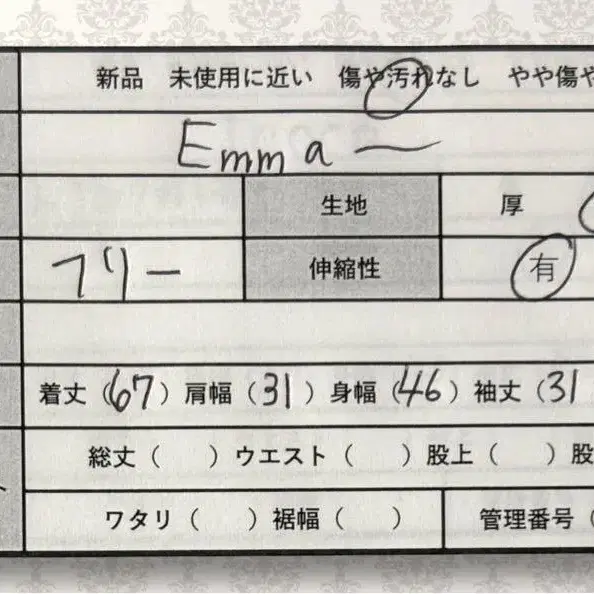 新品 未使用に近い 傷や汚れなし やや傷や
Emma
生地 厚
フリー 伸縮性 有
着丈（67）肩幅（31）身幅（46）袖丈（31
総丈（ ）ウエスト（ ）股上（ ）股
ワタリ（ ）裾幅（ ） 管理番号（